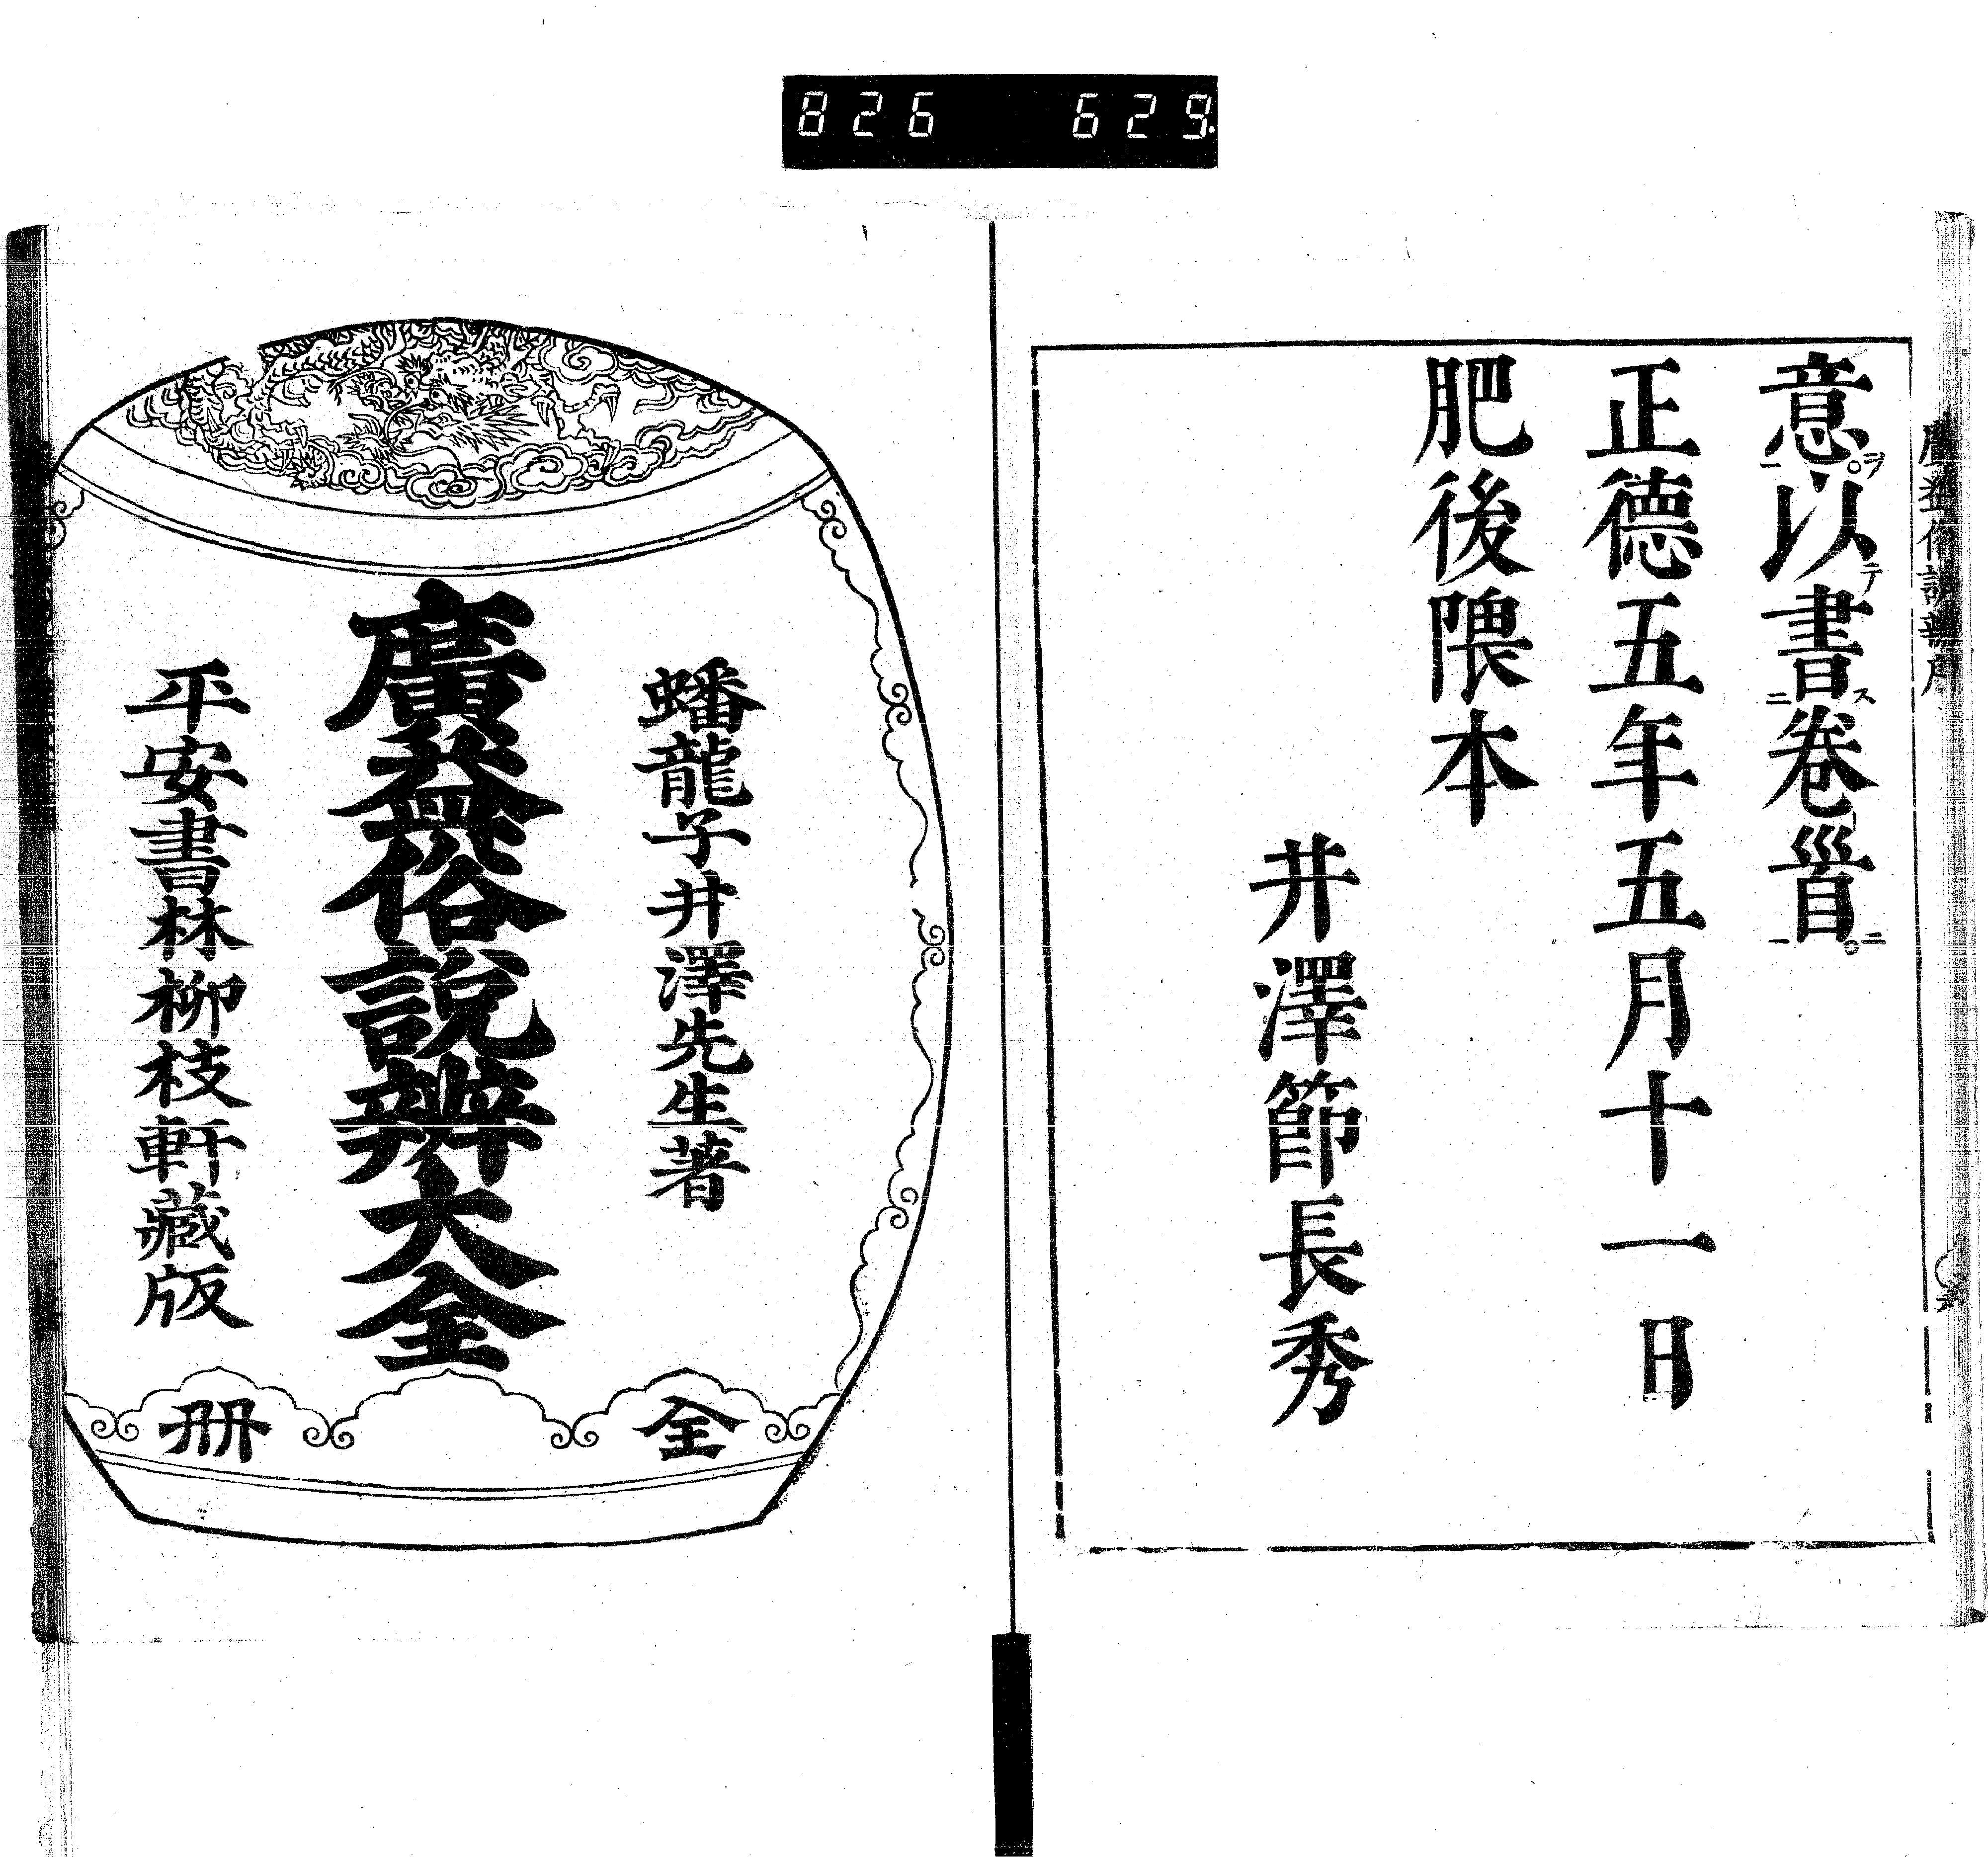 826 629
意ヲ以テ書ス卷𩠐ニ
正德五年五月十一日
肥後隈本
井澤節長秀
蟠龍子井澤先生著
廣益俗說辨大全
平安書林柳枝軒藏版
全
册